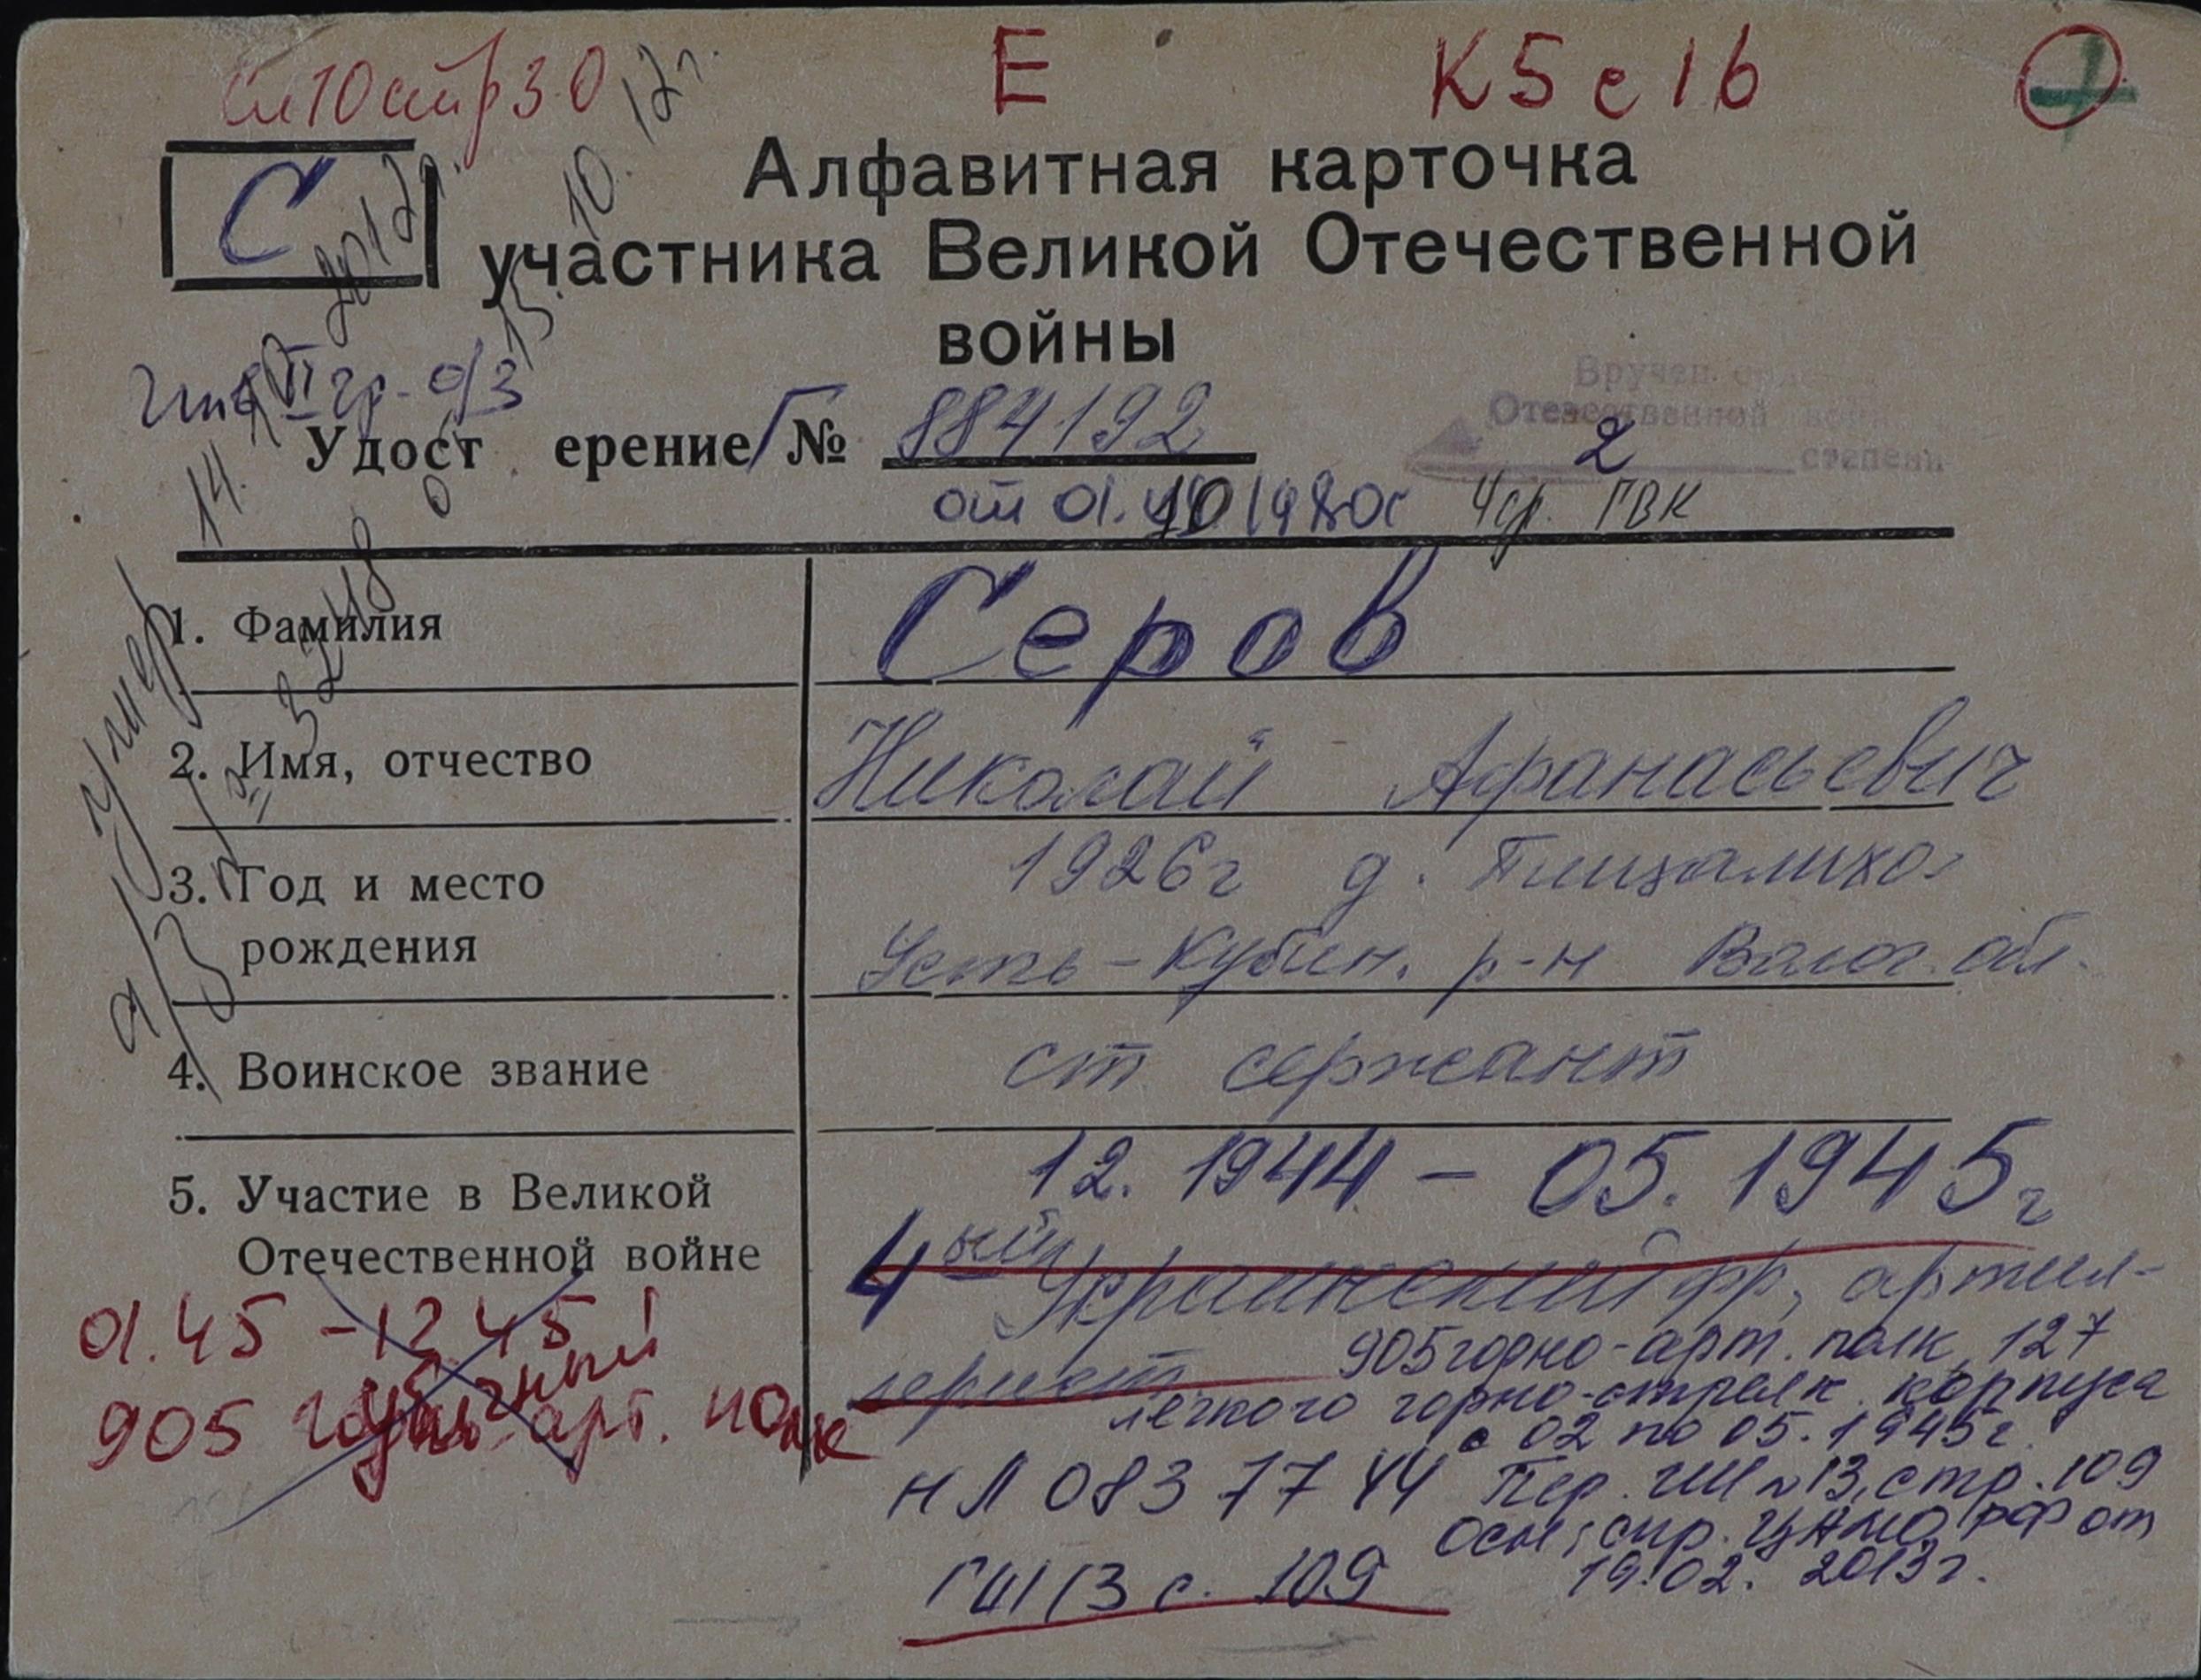 стр 30
Е
К5 с 16
С
Алфавитная карточка
участника Великой Отечественной
войны
Вручен
Отечественной
2 степени
II гр. о/з
Удост ерение № 884192
от 01. 10 1980г
ГВК
умер
1. Фамилия
Серов
2. Имя, отчество
Николай Афанасьевич
3. Год и место
рождения
1926г д.
Усть-Кубин. р-н Волог. обл.
4. Воинское звание
ст сержант
5. Участие в Великой
Отечественной войне
12. 1944 - 05. 1945г
4ый Украинский фр, артил-
лерист
905 горно-арт. полк 127
легкого горно-стрелк. корпуса
с 02 по 05. 1945г.
01.45 - 12.45
905 арт. полк
НЛ 0837744
Пер. ГШ №13, стр. 109
осн; спр. ЦАМО РФ от
19.02. 2013г.
ГШ 13 с. 109